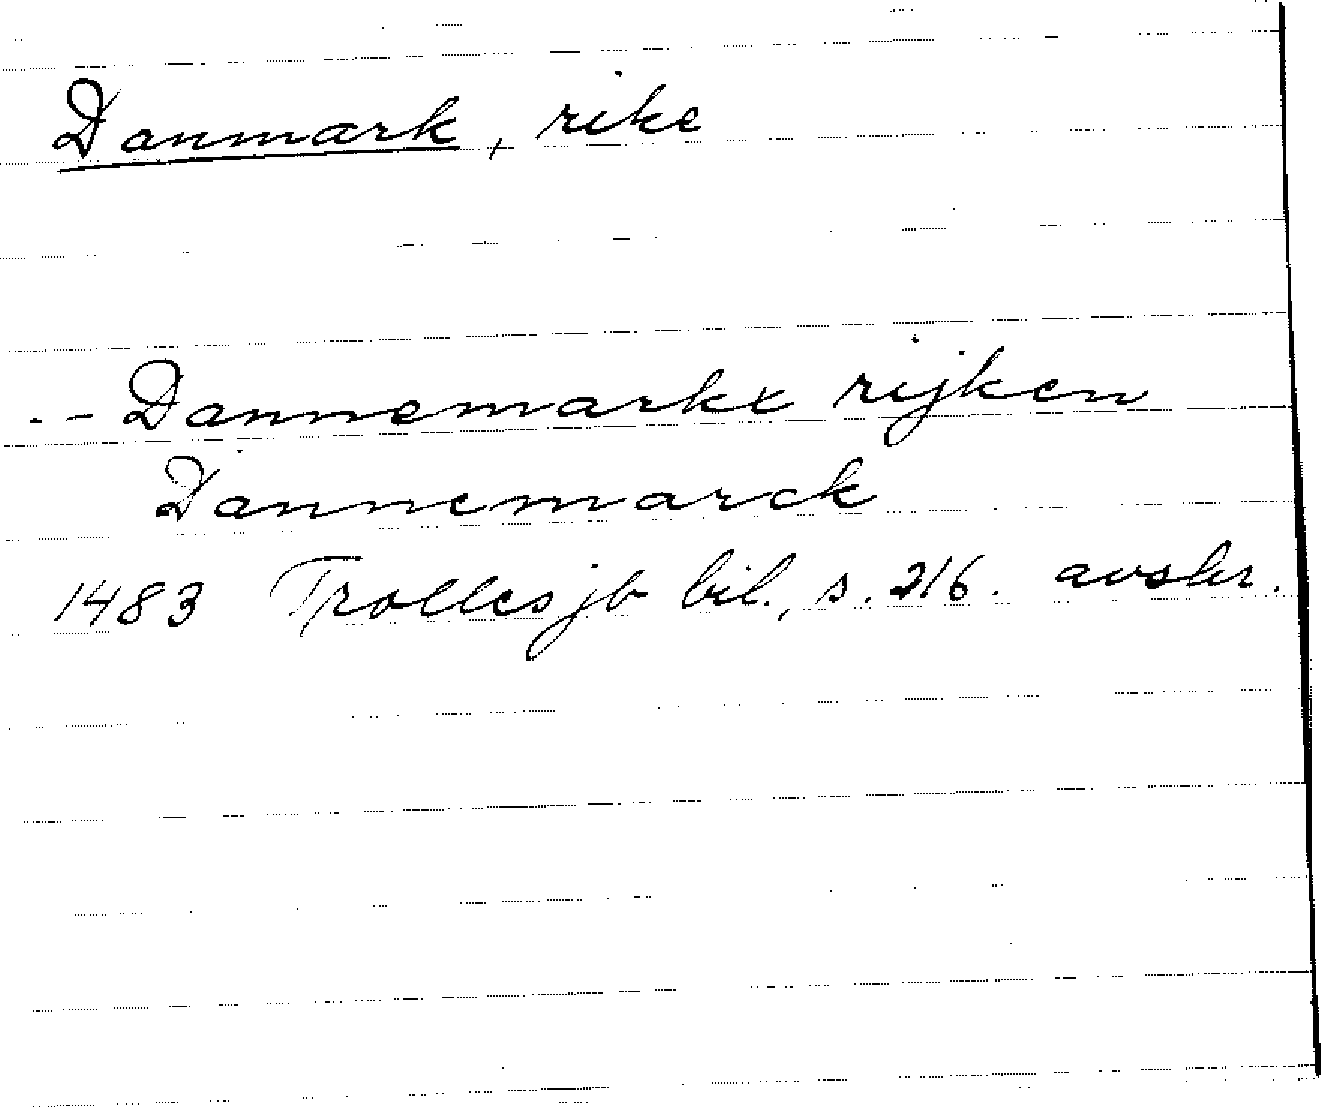 Danmark, rike
.- Dannemarkx rijken
Dannemarck
1483 Trolles jb bil., s. 216. avskr.